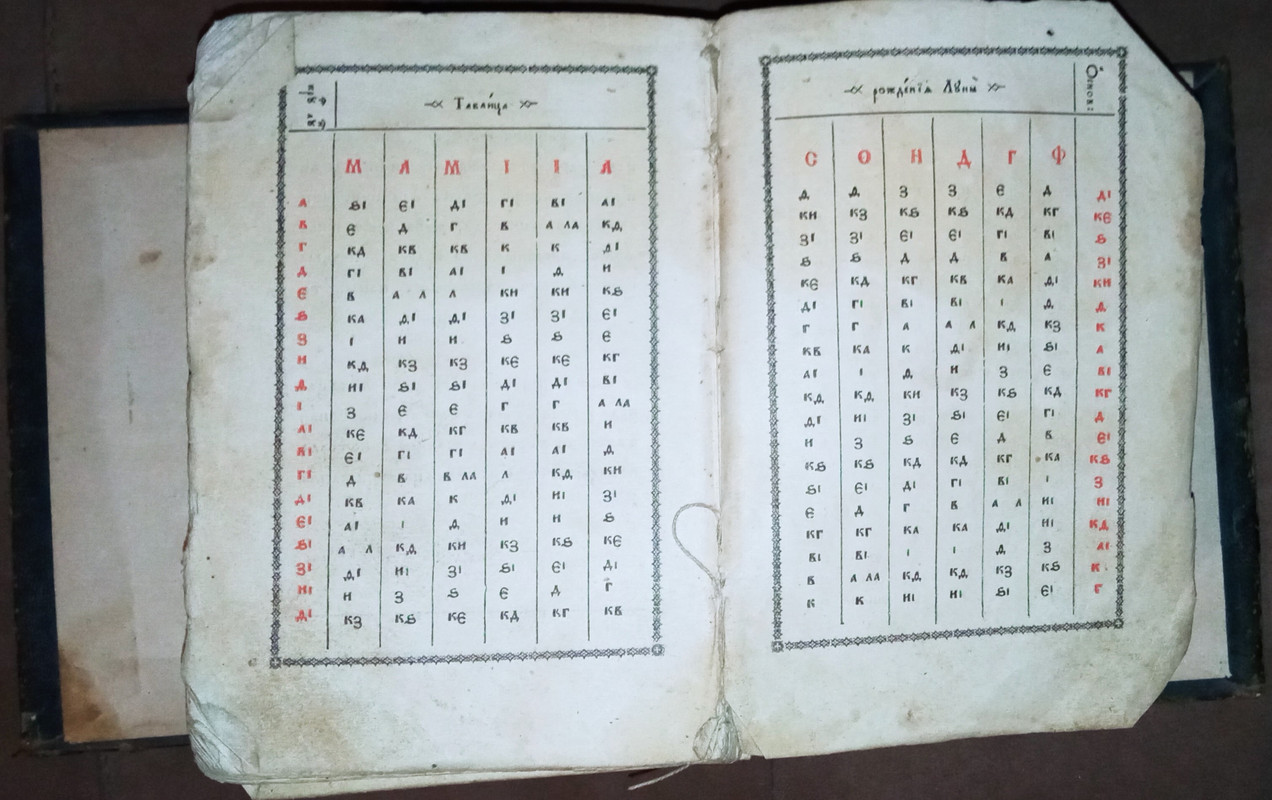 Таблица
М А М І І А
А ЅІ ЄІ ДІ ГІ ВІ АІ
В Є Д Г В А ЛА КѲ
Г КД КВ КВ К К ѲІ
Д ГІ ВІ АІ І Ѳ И
Є В А Л Л КИ КИ КЅ
Ѕ КА ѲІ ѲІ ЗІ ЗІ ЄІ
З І И И Ѕ Ѕ Є
И КѲ КЗ КЗ КЄ КЄ КГ
Ѳ ИІ ЅІ ЅІ ДІ ДІ ВІ
І З Є Є Г Г А ЛА
АІ КЄ КД КГ КВ КВ И
ВІ ЄІ ГІ ГІ АІ АІ Ѳ
ГІ Д В В ЛА Л КѲ КИ
ДІ КВ КА К ѲІ ИІ ЗІ
ЄІ АІ І Ѳ И И Ѕ
ЅІ А Л КѲ КИ КЗ КЅ КЄ
ЗІ ѲІ ИІ ЗІ ЅІ ЄІ ДІ
ИІ И З Ѕ Є Д Г
ѲІ КЗ КЅ КЄ КД КГ КВ
рожде́нїѧ Лꙋны̀
Ѻснов:
С О Н Д Г Ф
Ѳ Ѳ З З Є Д ДІ
КИ КЗ КЅ КЅ КД КГ КЄ
ЗІ ЗІ ЄІ ЄІ ГІ ВІ Ѕ
Ѕ Ѕ Д Д В А ЗІ
КЄ КД КГ КВ КА ѲІ КИ
ДІ ГІ ВІ ВІ І Ѳ Ѳ
Г Г А А Л КѲ КЗ К
КВ КА К ѲІ ИІ ЅІ А
АІ І Ѳ И З Є ВІ
КѲ КѲ КИ КЗ КЅ КД КГ
ѲІ ИІ ЗІ ЅІ ЄІ ГІ Д
И З Ѕ Є Д В ЄІ
КЅ КЅ КД КД КГ КА КЅ
ЅІ ЄІ ДІ ГІ ВІ І З
Є Д Г В А Л ИІ ИІ
КГ КГ КА КА ѲІ ИІ КѲ
ВІ ВІ І І Ѳ З АІ
В А ЛА КѲ КѲ КЗ КЅ К
К К ИІ ИІ ЅІ ЄІ Г